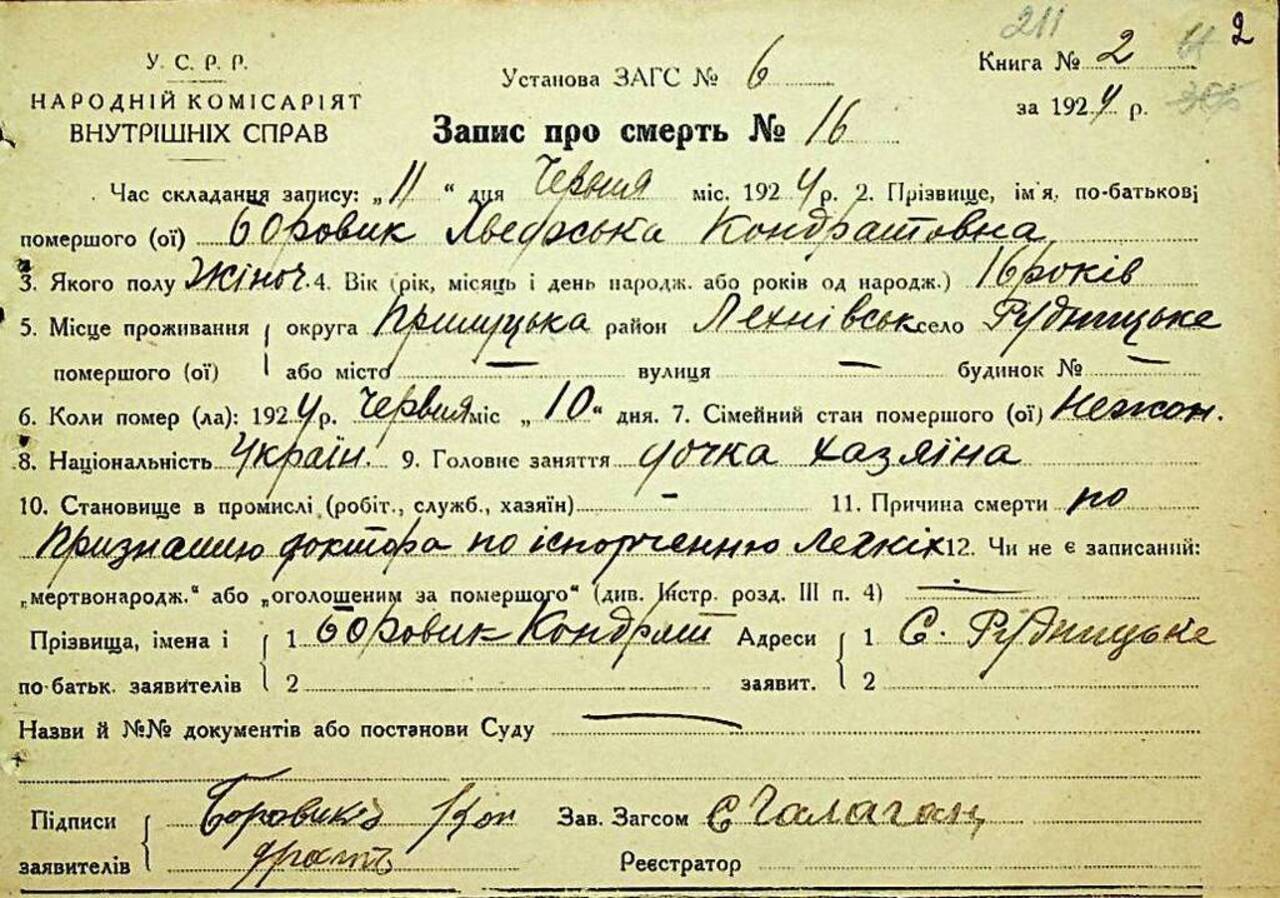 211
2
У. С. Р. Р.
НАРОДНІЙ КОМІСАРІЯТ
ВНУТРІШНІХ СПРАВ
Установа ЗАГС № 6
Книга № 2
за 1924 р.
Запис про смерть № 16
Час складання запису: „11“ дня Червня міс. 1924 р. 2. Прізвище, ім'я, по-батькові
помершого (ої) Боровик Хведоська Кондратовна
3. Якого полу Жіноч. 4. Вік (рік, місяць і день народж. або років од народж.) 16 років
5. Місце проживання округа Прилуцька район Лехнівськ село Рудницьке
помершого (ої) або місто — вулиця — будинок № —
6. Коли помер (ла): 1924 р. Червня міс „10“ дня. 7. Сімейний стан помершого (ої) Нежон.
8. Національність Україн. 9. Головне заняття дочка хазяїна
10. Становище в промислі (робіт., служб., хазяїн) - 11. Причина смерти по
признанию доктора по іспорченню легкіх 12. Чи не є записаний:
„мертвонародж.“ або „оголошеним за помершого“ (див. Інстр. розд. III п. 4) —
Прізвища, імена і 1 Боровик Кондрат Адреси 1 С. Рудницьке
по-батьк. заявителів 2 заявит. 2
Назви й №№ документів або постанови Суду —
Підписи Боровикъ Кон Зав. Загсом Є Галаган
заявителів дратъ Реєстратор